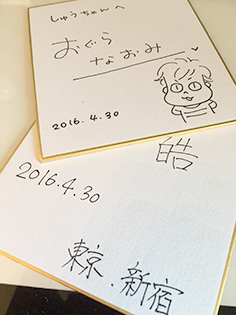 しゅうちゃんへ
おぐら
なおみ
2016.4.30
皓
2016.4.30
東京.新宿